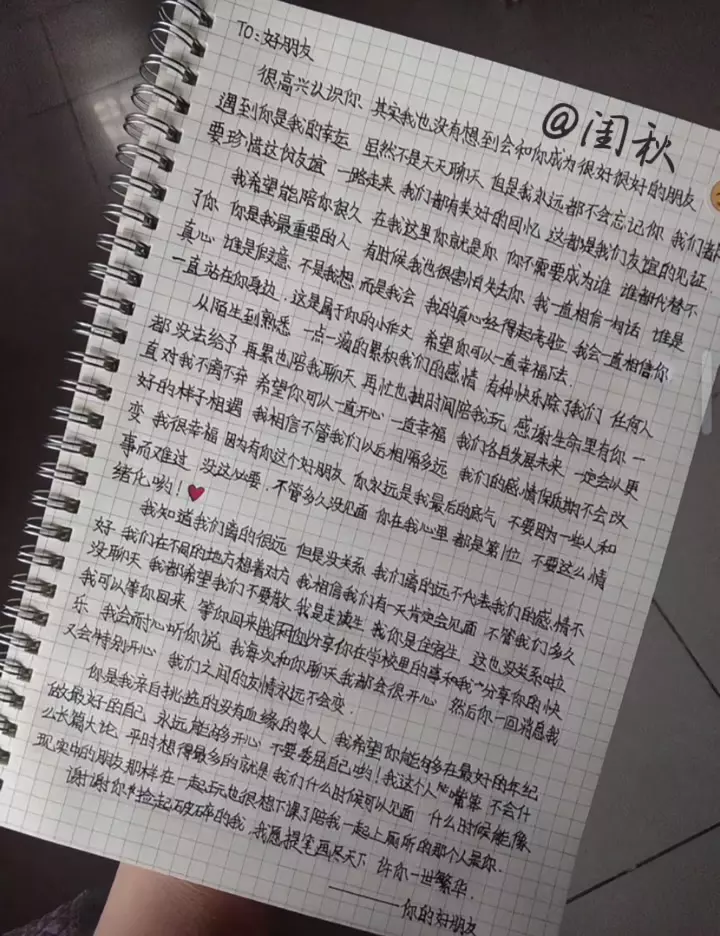 TO:好朋友
@闺秋
很高兴认识你 其实我也没有想到会和你成为很好很好的朋友
遇到你是我的幸运 虽然不是天天聊天 但是我永远都不会忘记你 我们都
要珍惜这份友谊 一路走来 我们都有美好的回忆 这都是我们友谊的见证.
我希望能陪你很久 在我这里你就是你 你不需要成为谁 谁都代替不
了你 你是我最重要的人 有时候我也很害怕失去你 我一直相信一句话 谁是
真心 谁是假意 不是我想 而是我会 我的真心经得起考验 我会一直相信你
一直站在你身边.这是属于你的小作文 希望你可以一直幸福下去.
从陌生到熟悉 一点一滴的累积我们的感情 有种快乐除了我们 任何人
都没法给予 再累也陪我聊天 再忙也抽时间陪我玩 感谢生命里有你 一
直对我不离不弃 希望你可以一直开心 一直幸福 我们各自发展未来 一定会以更
好的样子相遇 我相信不管我们以后相隔多远 我们的感情保质期不会改
变 我很幸福 因为有你这个好朋友 你永远是我最后的底气 不要因为一些人和
事而难过 没这必要.不管多久没见面 你在我心里 都是第1位 不要这么情
绪化哟!
我知道我们离的很远 但是没关系 我们离的远不代表我们的感情不
好 我们在不同的地方想着对方 我相信我们有一天肯定会见面 不管我们多久
没聊天 我都希望我们不要散 我是走读生 我你是住宿生 这也没关系啦
我可以等你回来 等你回来 你分享你在学校里的事和我 分享你的快
乐 我会耐心听你说 我每次和你聊天我都会很开心 然后你一回消息我
又会特别开心 我们之间的友情永远不会变.
你是我亲自挑选的没有血缘的家人 我希望你能够在最好的年纪
做最好的自己 永远能够开心 不要委屈自己哟!我这个人 嘴笨 不会什
么长篇大论 平时想得最多的就是 我们什么时候可以见面 什么时候能像
现实中的朋友那样在一起玩也很想下课了陪我一起上厕所的那个人是你.
谢谢你 捡起破碎的我 我愿提笔画尽天下 许你一世繁华.
——你的好朋友